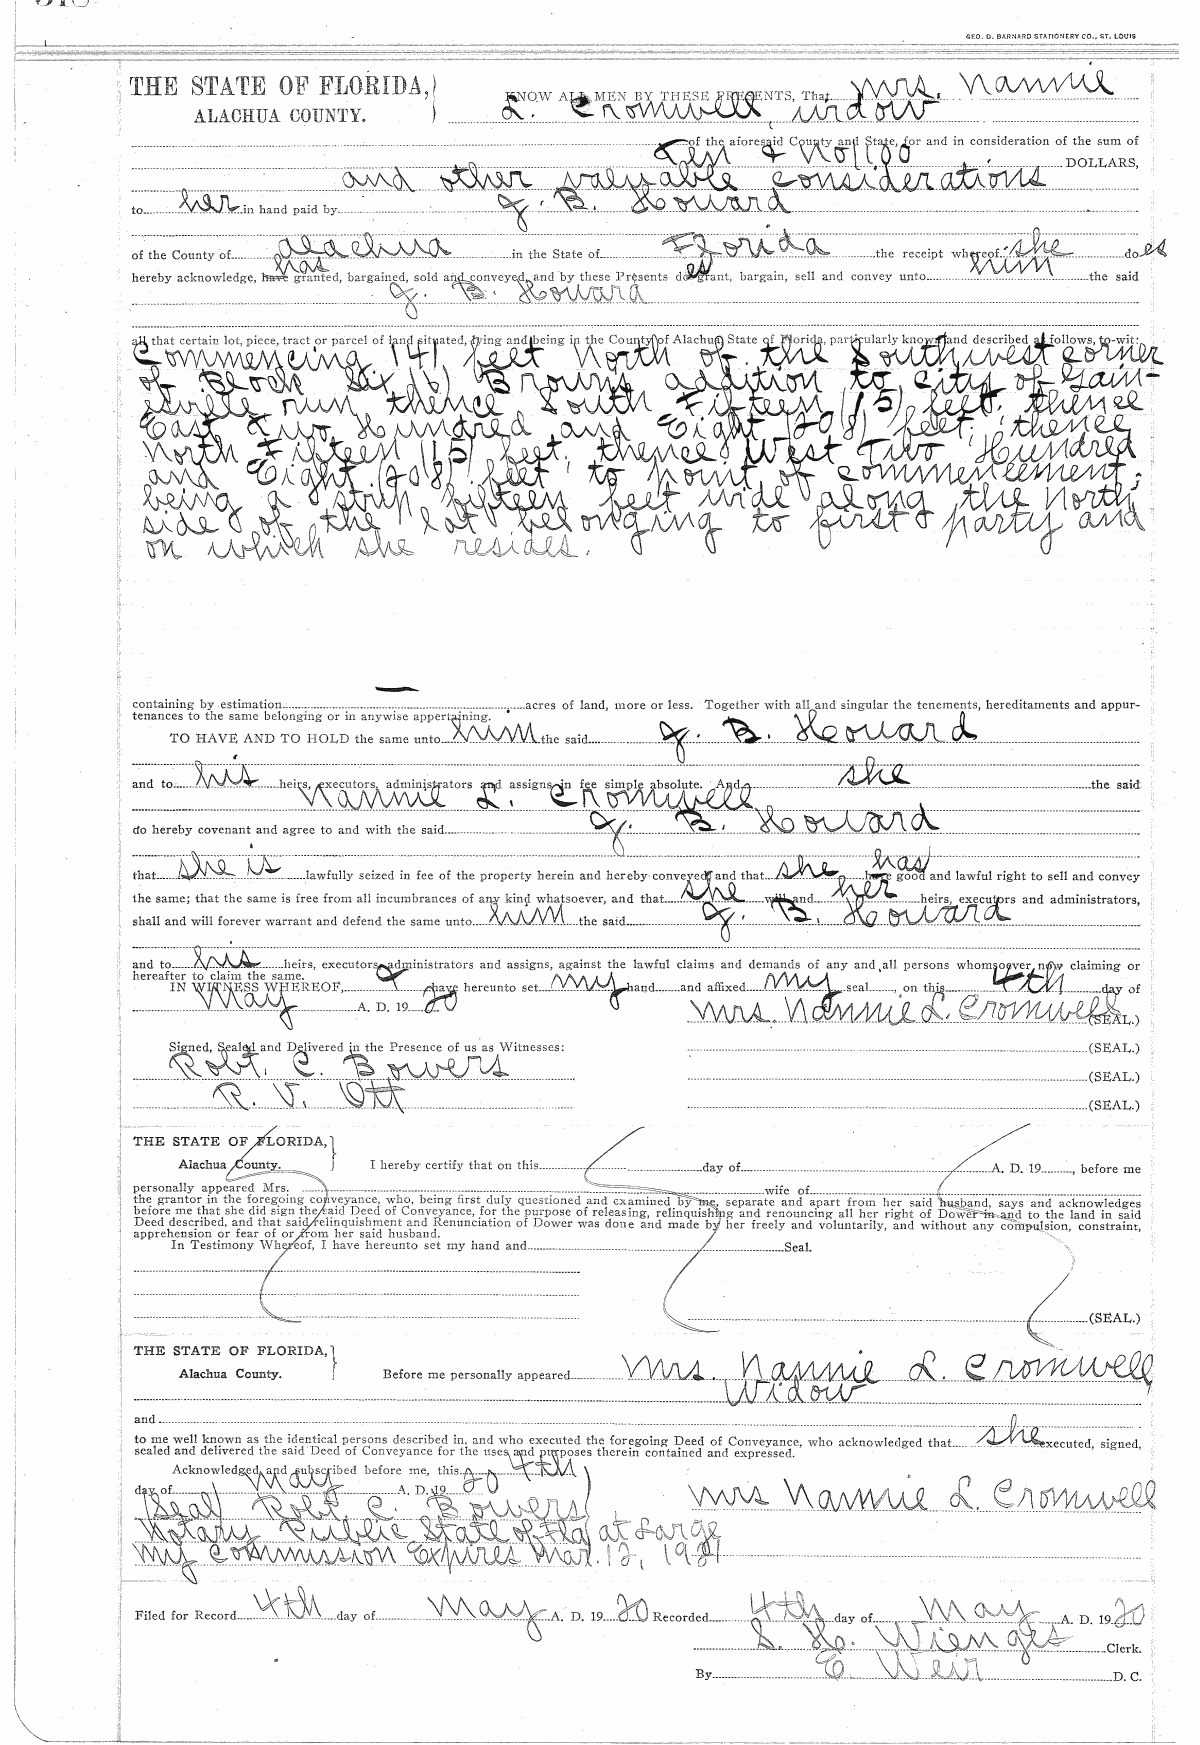 GEO. D. BARNARD STATIONERY CO., ST. LOUIS
THE STATE OF FLORIDA,
ALACHUA COUNTY.
KNOW ALL MEN BY THESE PRESENTS, That Mrs. Nannie
L. Cromwell, widow
of the aforesaid County and State, for and in consideration of the sum of
Ten & No/100 DOLLARS,
and other valuable considerations
to her in hand paid by J. B. Howard
of the County of Alachua in the State of Florida the receipt whereof she does
hereby acknowledge, have has granted, bargained, sold and conveyed, and by these Presents does grant, bargain, sell and convey unto him the said
J. B. Howard
all that certain lot, piece, tract or parcel of land situated, lying and being in the County of Alachua State of Florida, particularly known and described as follows, to-wit:
Commencing 141 feet North of the Southwest corner
of Block Six (6) Browns addition to City of Gain-
esville run thence South Fifteen (15) feet, thence
East Two Hundred and Eight (208) feet, thence
North Fifteen (15) feet, thence West Two Hundred
and Eight (208) feet to point of commencement;
being a strip fifteen feet wide along the North
side of the lot belonging to first party and
on which she resides.
containing by estimation — acres of land, more or less. Together with all and singular the tenements, hereditaments and appur-
tenances to the same belonging or in anywise appertaining.
TO HAVE AND TO HOLD the same unto him the said J. B. Howard
and to his heirs, executors, administrators and assigns in fee simple absolute. And she the said
Nannie L. Cromwell
do hereby covenant and agree to and with the said J. B. Howard
that she is lawfully seized in fee of the property herein and hereby conveyed and that she have has good and lawful right to sell and convey
the same; that the same is free from all incumbrances of any kind whatsoever, and that she will and her heirs, executors and administrators,
shall and will forever warrant and defend the same unto him the said J. B. Howard
and to his heirs, executors, administrators and assigns, against the lawful claims and demands of any and all persons whomsoever now claiming or
hereafter to claim the same.
IN WITNESS WHEREOF, I have hereunto set my hand and affixed my seal, on this 4th day of
May A. D. 1920
Mrs. Nannie L. Cromwell (SEAL.)
Signed, Sealed and Delivered in the Presence of us as Witnesses: (SEAL.)
Robt. C. Bowers (SEAL.)
R. V. Ott (SEAL.)
THE STATE OF FLORIDA,
Alachua County. I hereby certify that on this day of A. D. 19, before me
personally appeared Mrs. wife of
the grantor in the foregoing conveyance, who, being first duly questioned and examined by me, separate and apart from her said husband, says and acknowledges
before me that she did sign the said Deed of Conveyance, for the purpose of releasing, relinquishing and renouncing all her right of Dower in and to the land in said
Deed described, and that said relinquishment and Renunciation of Dower was done and made by her freely and voluntarily, and without any compulsion, constraint,
apprehension or fear of or from her said husband.
In Testimony Whereof, I have hereunto set my hand and Seal.
(SEAL.)
THE STATE OF FLORIDA,
Alachua County. Before me personally appeared Mrs. Nannie L. Cromwell
Widow
and
to me well known as the identical persons described in, and who executed the foregoing Deed of Conveyance, who acknowledged that she executed, signed,
sealed and delivered the said Deed of Conveyance for the uses and purposes therein contained and expressed.
Acknowledged and subscribed before me, this 4th
day of May A. D. 1920
(Seal) Robt C. Bowers Mrs Nannie L. Cromwell
Notary Public State of Fla at Large
My Commission Expires Mar. 12, 1921
Filed for Record 4th day of May A. D. 1920 Recorded 4th day of May A. D. 1920
S. H. Wienges Clerk.
By E Weir D. C.